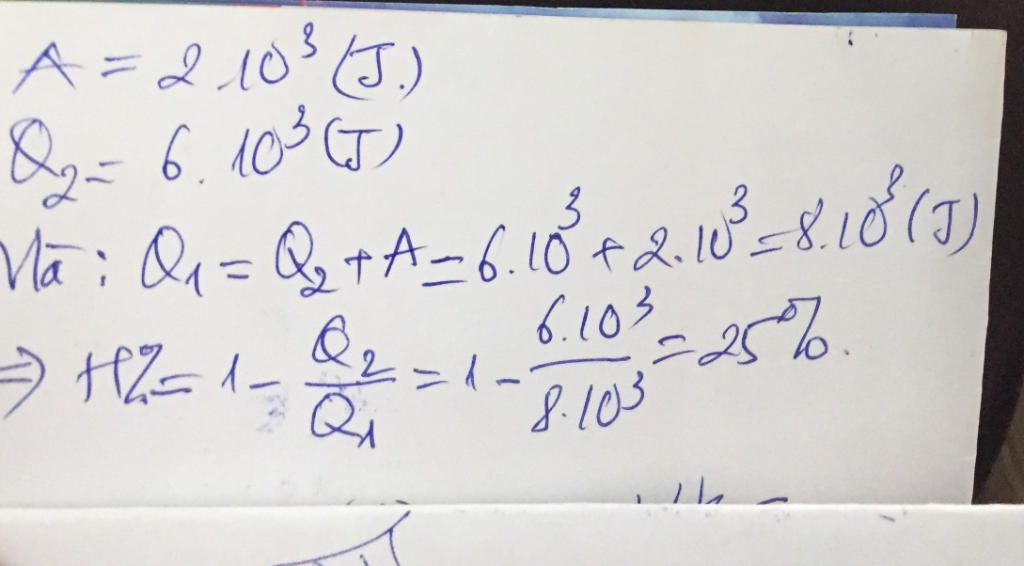 A = 2.10³ (J.)
Q₂ = 6.10³ (J)
Mà : Q₁ = Q₂ + A = 6.10³ + 2.10³ = 8.10³ (J)
⇒ H% = 1 - Q₂/Q₁ = 1 - 6.10³/8.10³ = 25%.